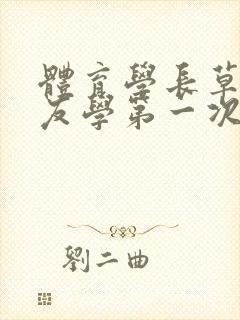 體育學長草
友學第一次
劉二曲